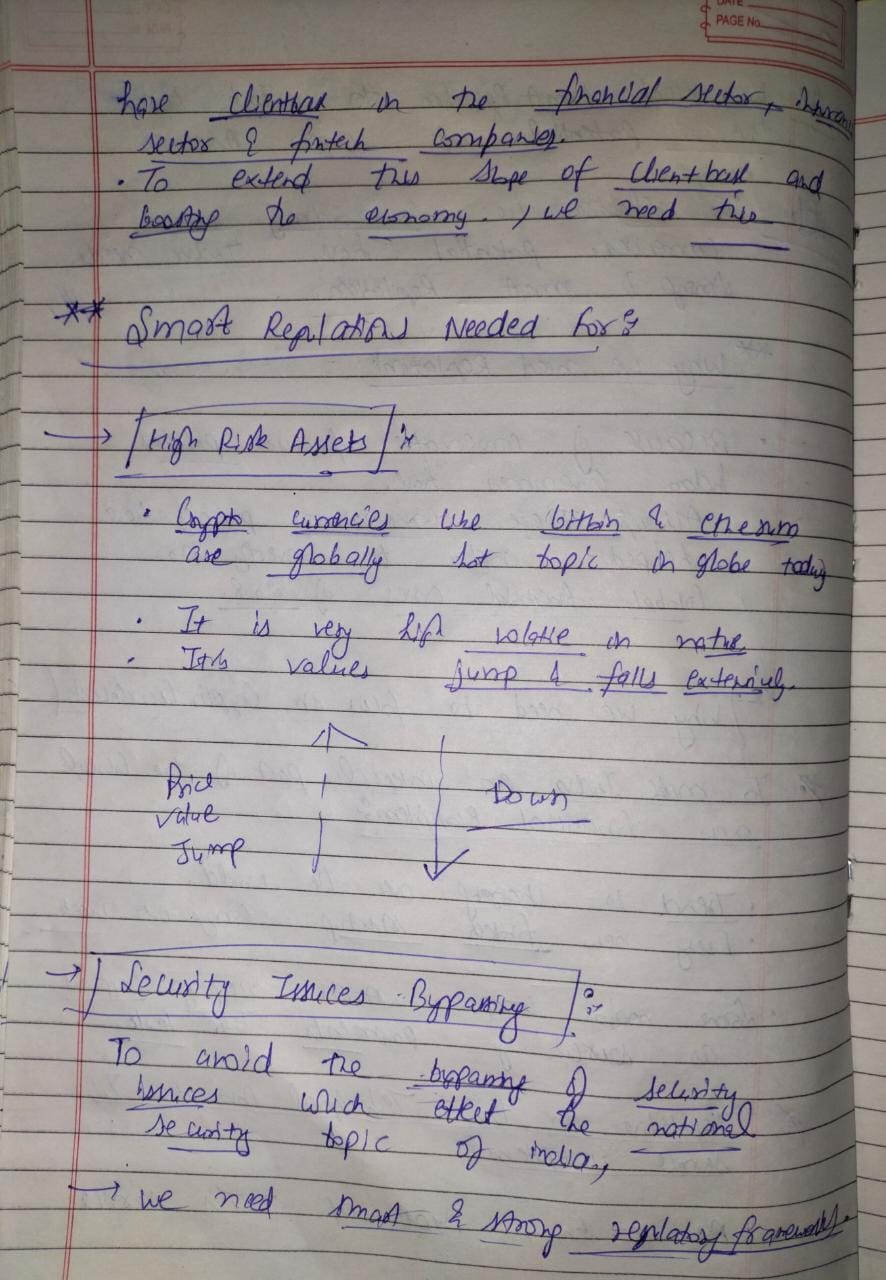 DATE
PAGE No.
have clientbase in the financial sector,
sector & fintech companies.
• To extend this slope of clientbase and
boosting the economy, we need this
** Smart Regulations Needed for:
→ High Risk Assets :
• Crypto currencies like bitcoin & ethereum
are globally hot topic in globe today
• It is very high volatile in nature
• It's values jump & falls extensively.
Price
Value
Jump
Down
→ Security Issues Bypassing :
To avoid the bypassing of security
issues which effect the national
security topic of india,
→ we need smart & strong regulatory frameworks.